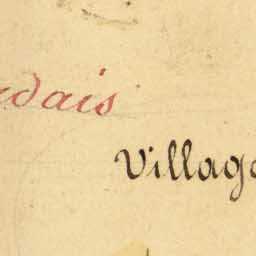 dais
Village